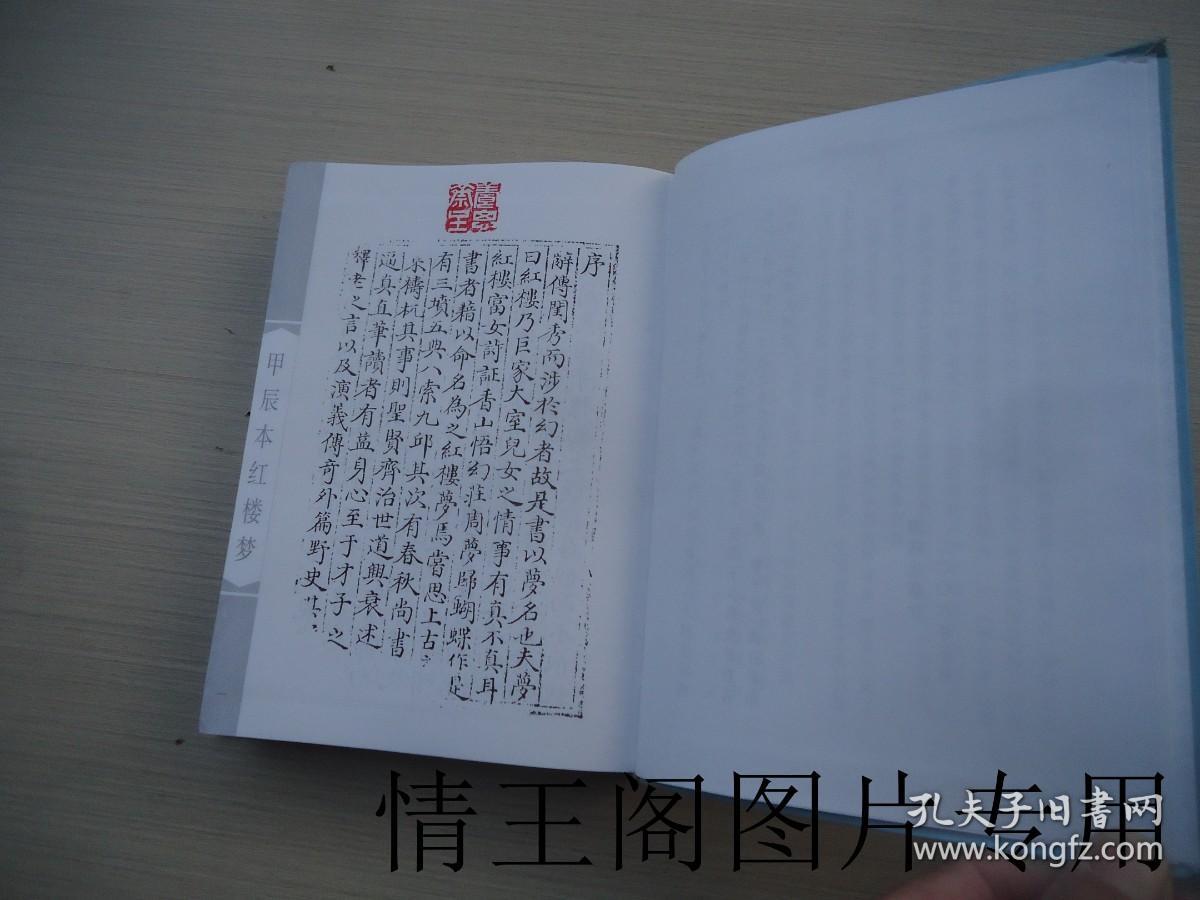 序
辭傳閨秀而涉於幻者故是書以夢名也夫夢
曰紅樓乃巨家大室兒女之情事有真不真耳
紅樓富女詩証香山悟幻莊周夢歸蝴蝶作是
書者藉以命名為之紅樓夢焉當思上古
有三墳五典八索九邱其次有春秋尚書
檮杌其事則聖賢齊治世道興衰述
逼真直筆讀者有益身心至于才子之
釋老之言以及演義傳奇外篇野史
甲辰本红楼梦
情王阁图片专用
孔夫子旧书网
www.kongfz.com